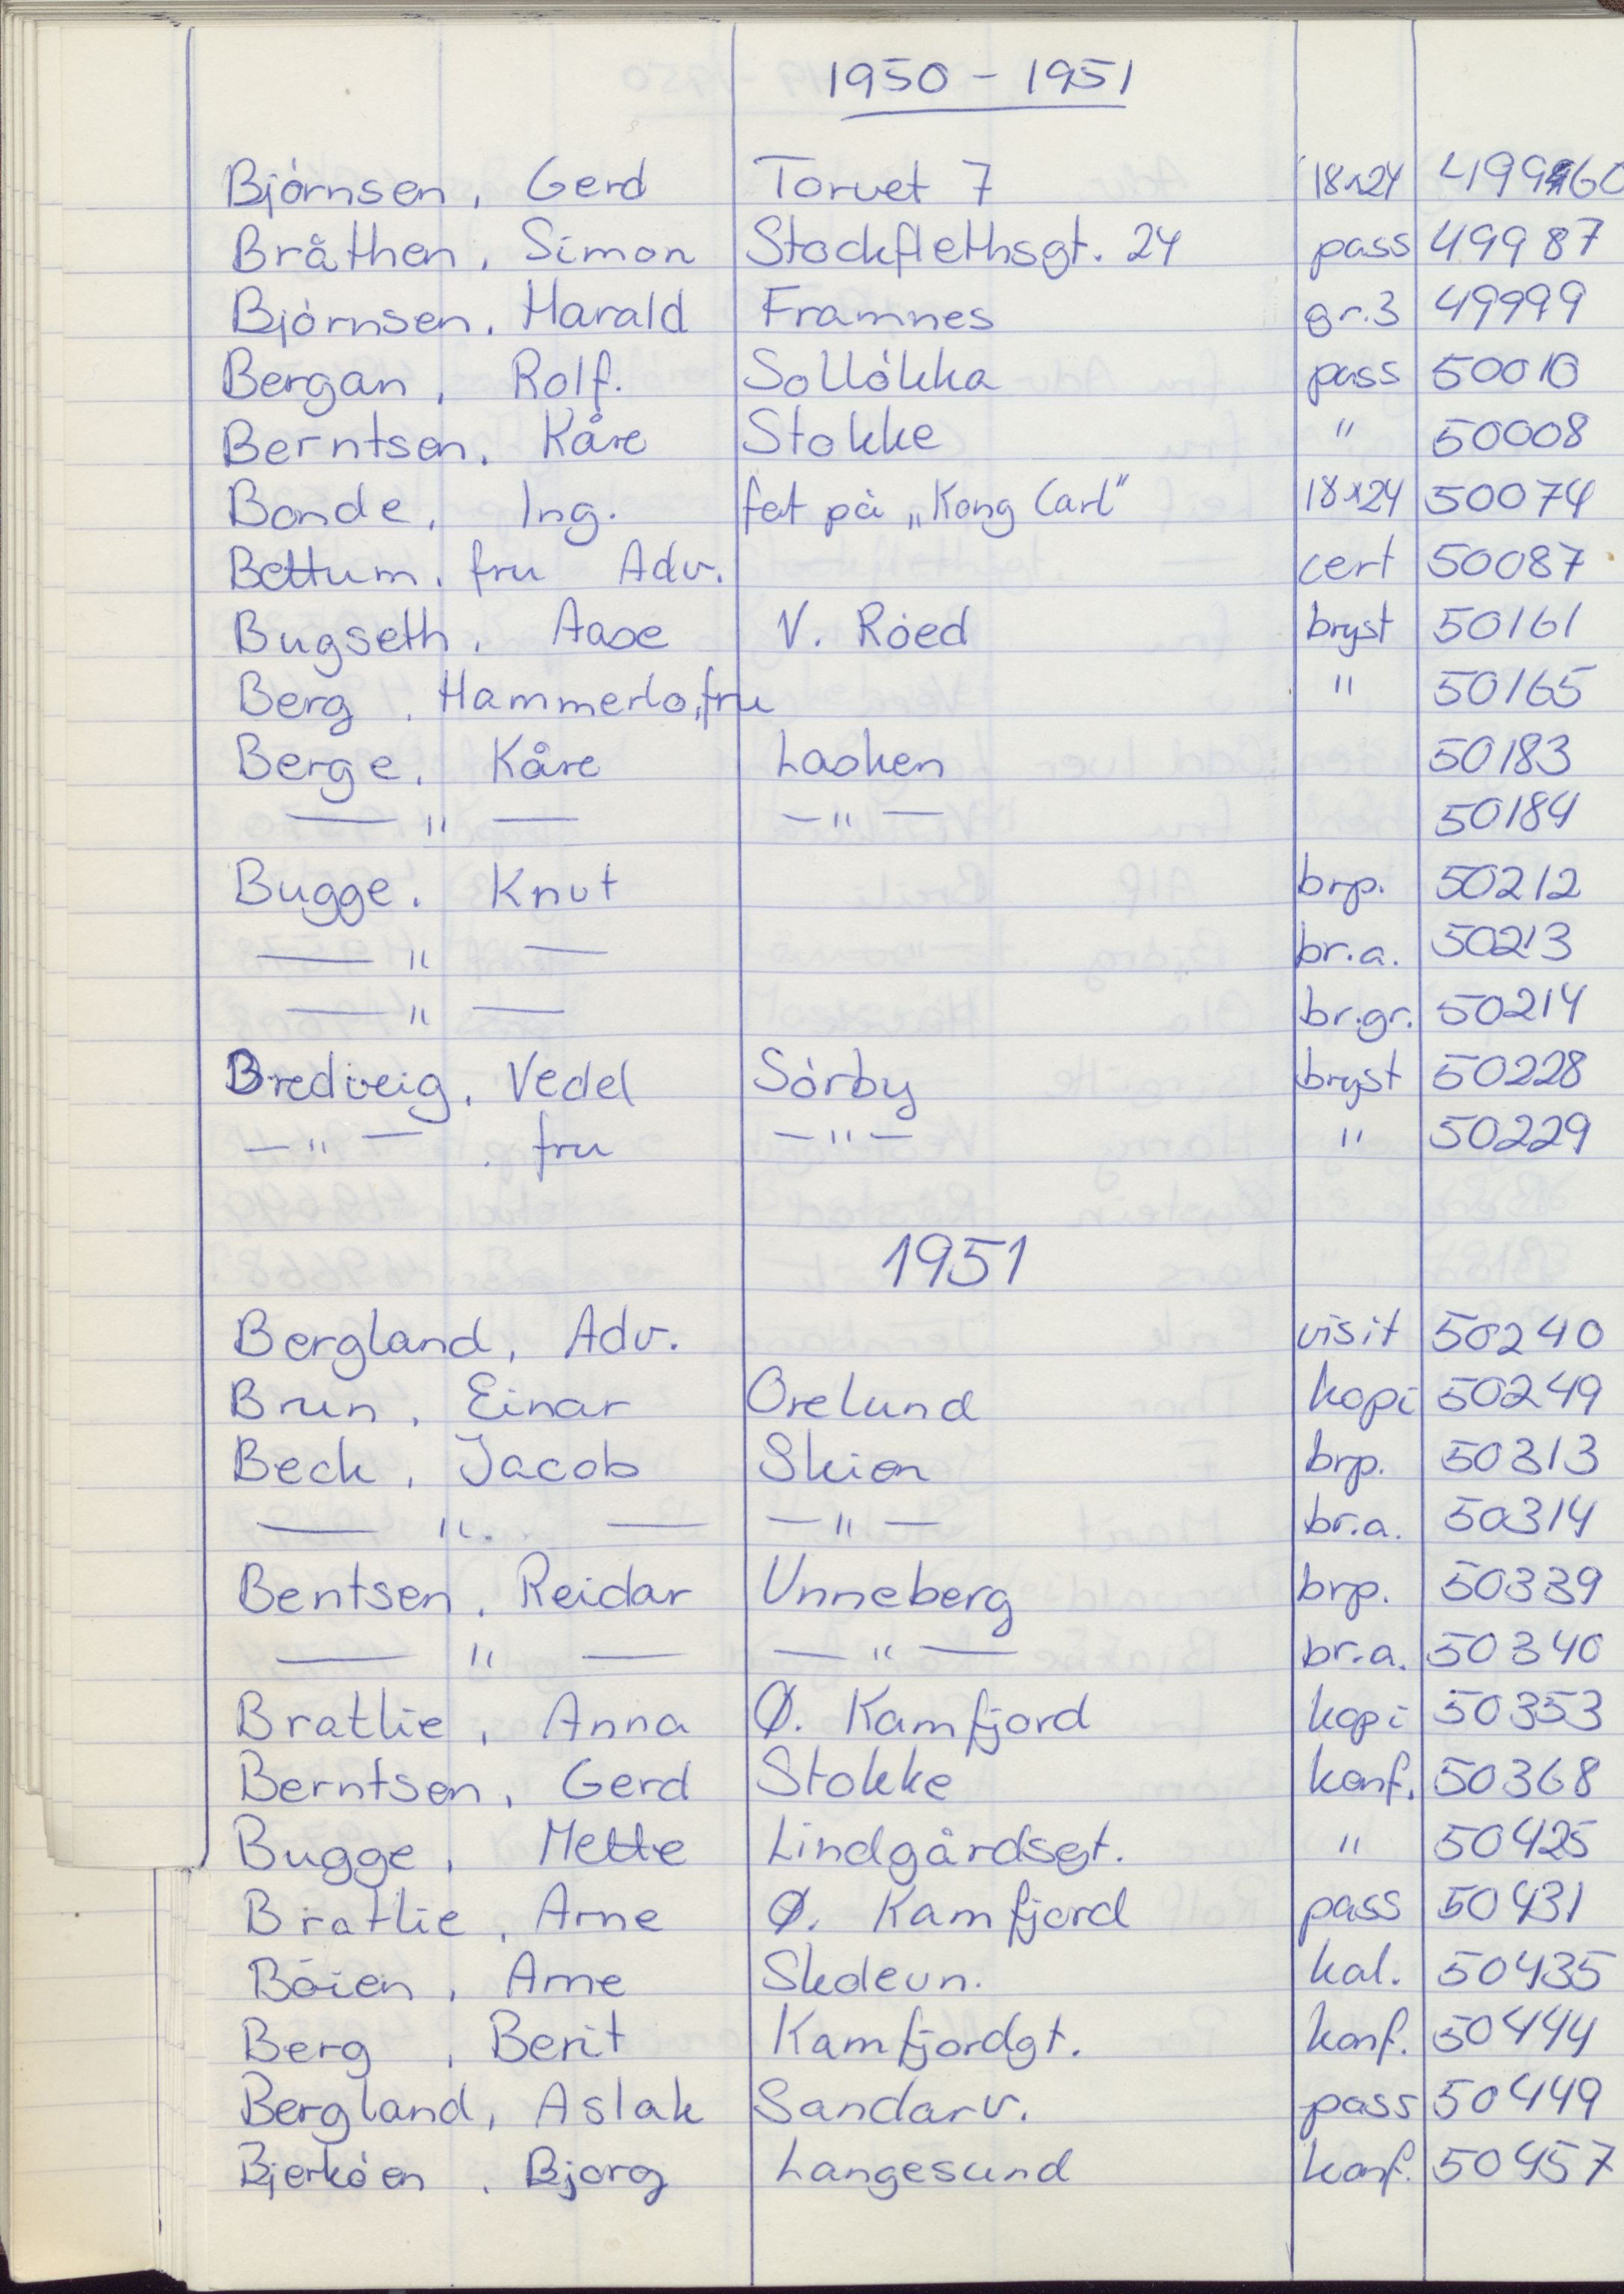 1950 - 1951
Bjórnsen, Gerd Torvet 7 18x24 499960
Bråthen, Simon Stockflethsgt. 24 pass 49987
Bjórnsen, Harald Framnes gr.3 49999
Bergan, Rolf. Sollókka pass 50010
Berntsen, Kåre Stokke " 50008
Bonde, Ing. fat på „Kong Carl" 18x24 50074
Bettum, fru Adv. cert 50087
Bugseth, Aase V. Róed bryst 50161
Berg, Hammerlo, fru " 50165
Berge, Kåre Lasken 50183
— " — — " — 50184
Bugge, Knut brp. 50212
— " — br.a. 50213
— " — br.gr. 50214
Bredveig, Vedel Sórby bryst 50228
— " — , fru — " — " 50229
1951
Bergland, Adv. visit 50240
Brun, Einar Orelund kopi 50249
Beck, Jacob Skien brp. 50313
— " — — " — br.a. 50314
Bentsen, Reidar Unneberg brp. 50339
— " — — " — br.a. 50340
Bratlie, Anna Ø. Kamfjord kopi 50353
Berntsen, Gerd Stokke konf. 50368
Bugge, Mette Lindgårdsgt. " 50425
Bratlie, Arne Ø. Kamfjord pass 50431
Bóien, Arne kal. 50435
Berg, Berit Kamfjordgt. konf. 50444
Bergland, Aslak Sandarv. pass 50449
Bjerkóen, Bjorg Langesund konf. 50457